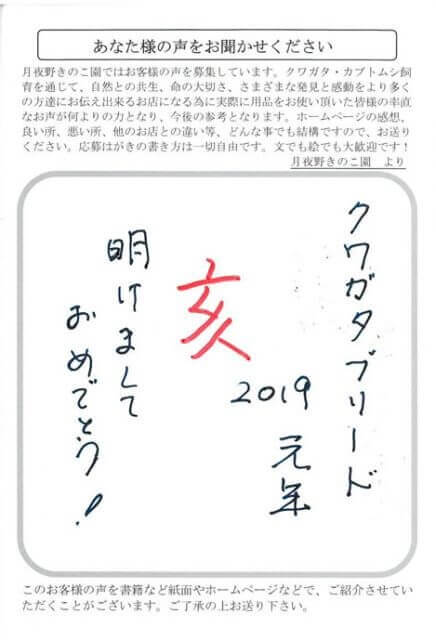 あなた様の声をお聞かせください
月夜野きのこ園ではお客様の声を募集しています。クワガタ・カブトムシ飼
育を通じて、自然との共生、命の大切さ、さまざまな発見と感動をより多く
の方達にお伝え出来るお店になる為に実際に用品をお使い頂いた皆様の率直
なお声が何よりの力となり、今後の参考となります。ホームページの感想、
良い所、悪い所、他のお店との違い等、どんな事でも結構ですので、お送り
ください。応募はがきの書き方は一切自由です。文でも絵でも大歓迎です！
月夜野きのこ園　より
クワガタブリード
2019
元年
亥
明けまして
おめでとう！
このお客様の声を書籍など紙面やホームページなどで、ご紹介させてい
ただくことがございます。ご了承の上お送り下さい。